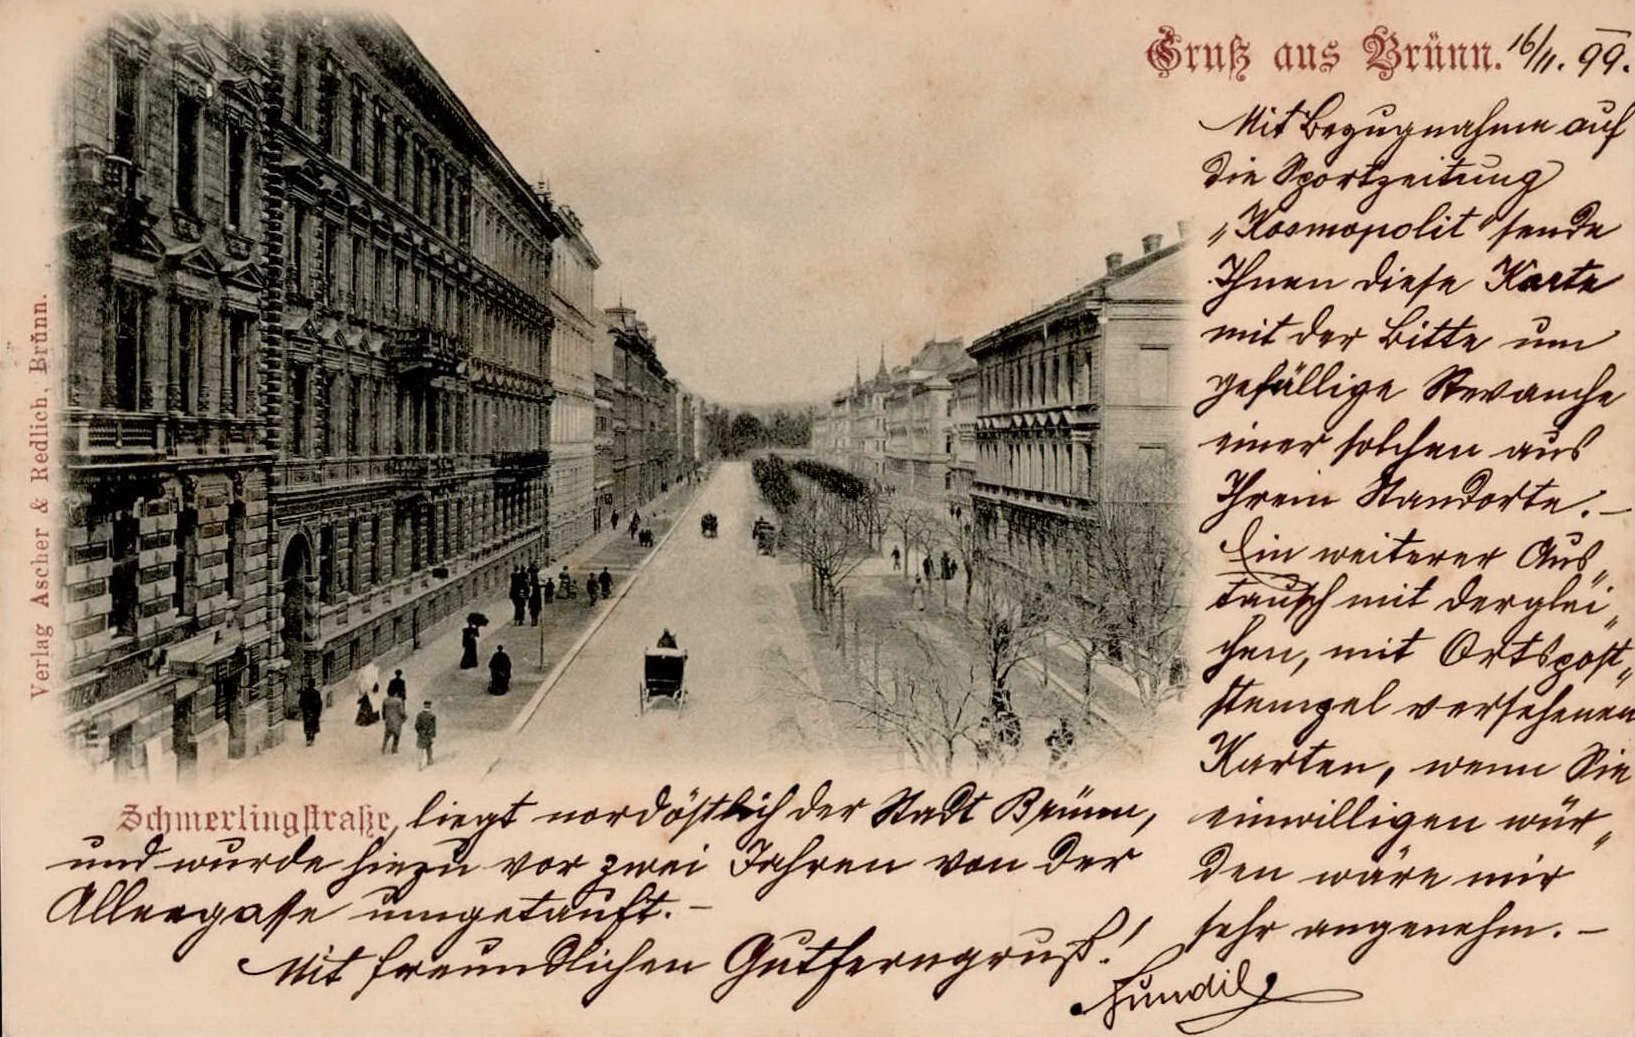 Gruß aus Brünn. 16/11. 99.
Mit Bezugnahme auf
die Sportzeitung
„Kosmopolit" sende
Ihnen diese Karte
mit der Bitte um
gefällige Revanche
einer solchen aus
Ihrem Standorte. –
Ein weiterer Aus„
tausch mit derglei„
chen, mit Ortspost„
stempel versehenen
Karten, wenn Sie
einwilligen wür„
den wäre mir
sehr angenehm. –
Schmerlingstraße, liegt nordöstlich der Stadt Brünn,
und wurde hiezu vor zwei Jahren von der
Alleegasse umgetauft. –
Mit freundlichen Gutferngruß!
Verlag Ascher & Redlich, Brünn.